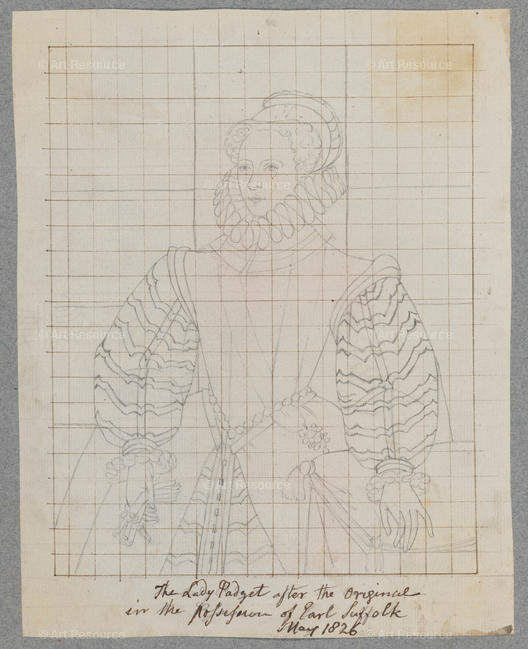 The Lady Padget after the original
in the Possession of Earl Suffolk
May 1826
© Art Resource
© Art Resource
© Art Resource
© Art Resource
© Art Resource
© Art Resource
© Art Resource
© Art Resource
© Art Resource